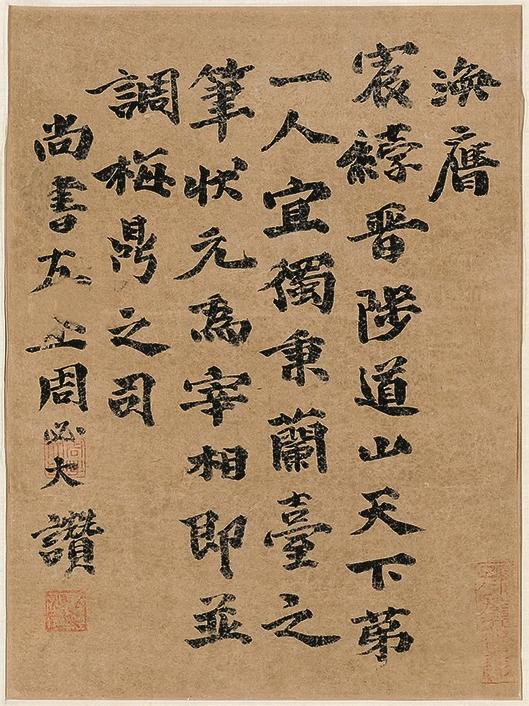 渙膺
宸綍晉陟道山天下第
一人宜獨秉蘭臺之
筆狀元為宰相即並
調梅鼎之司
尚書左丞周必大讚